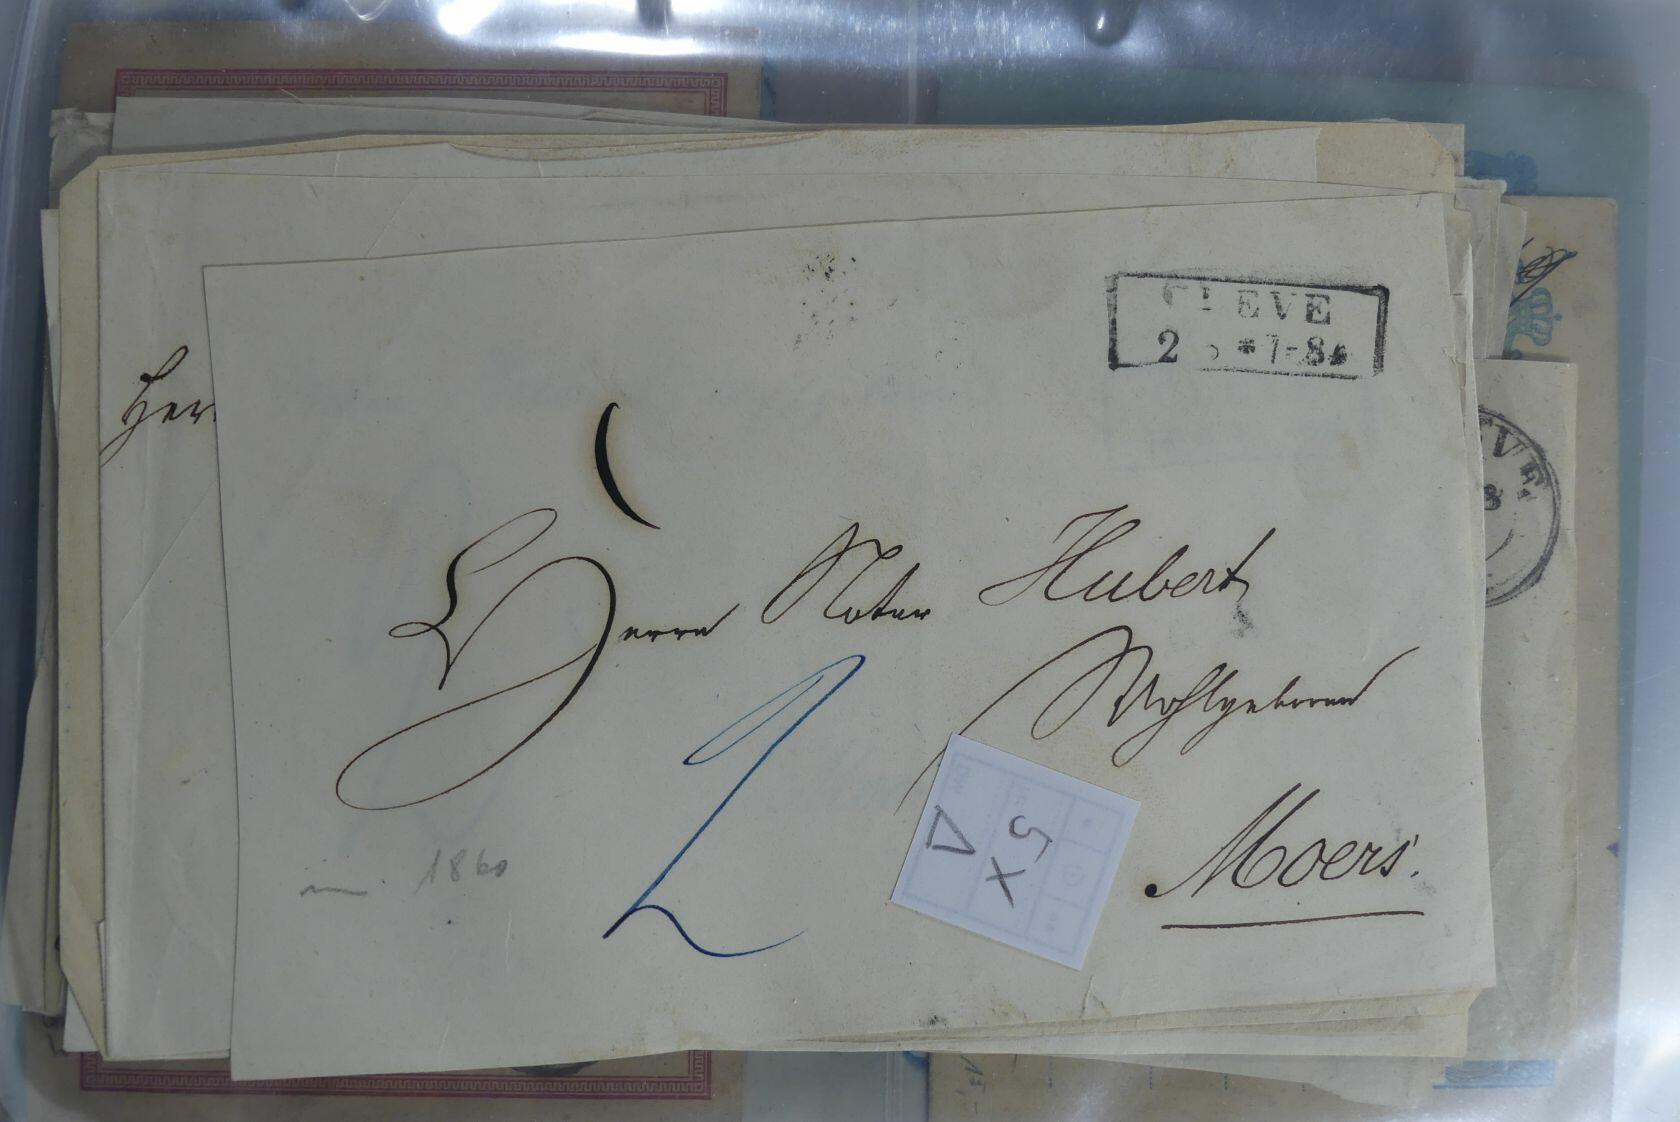 CLEVE
2 5 * 7-8
Her
Herrn Notar Hubert
Wohlgeboren
Moers.
2
1860
5 X
Δ
EVE
8